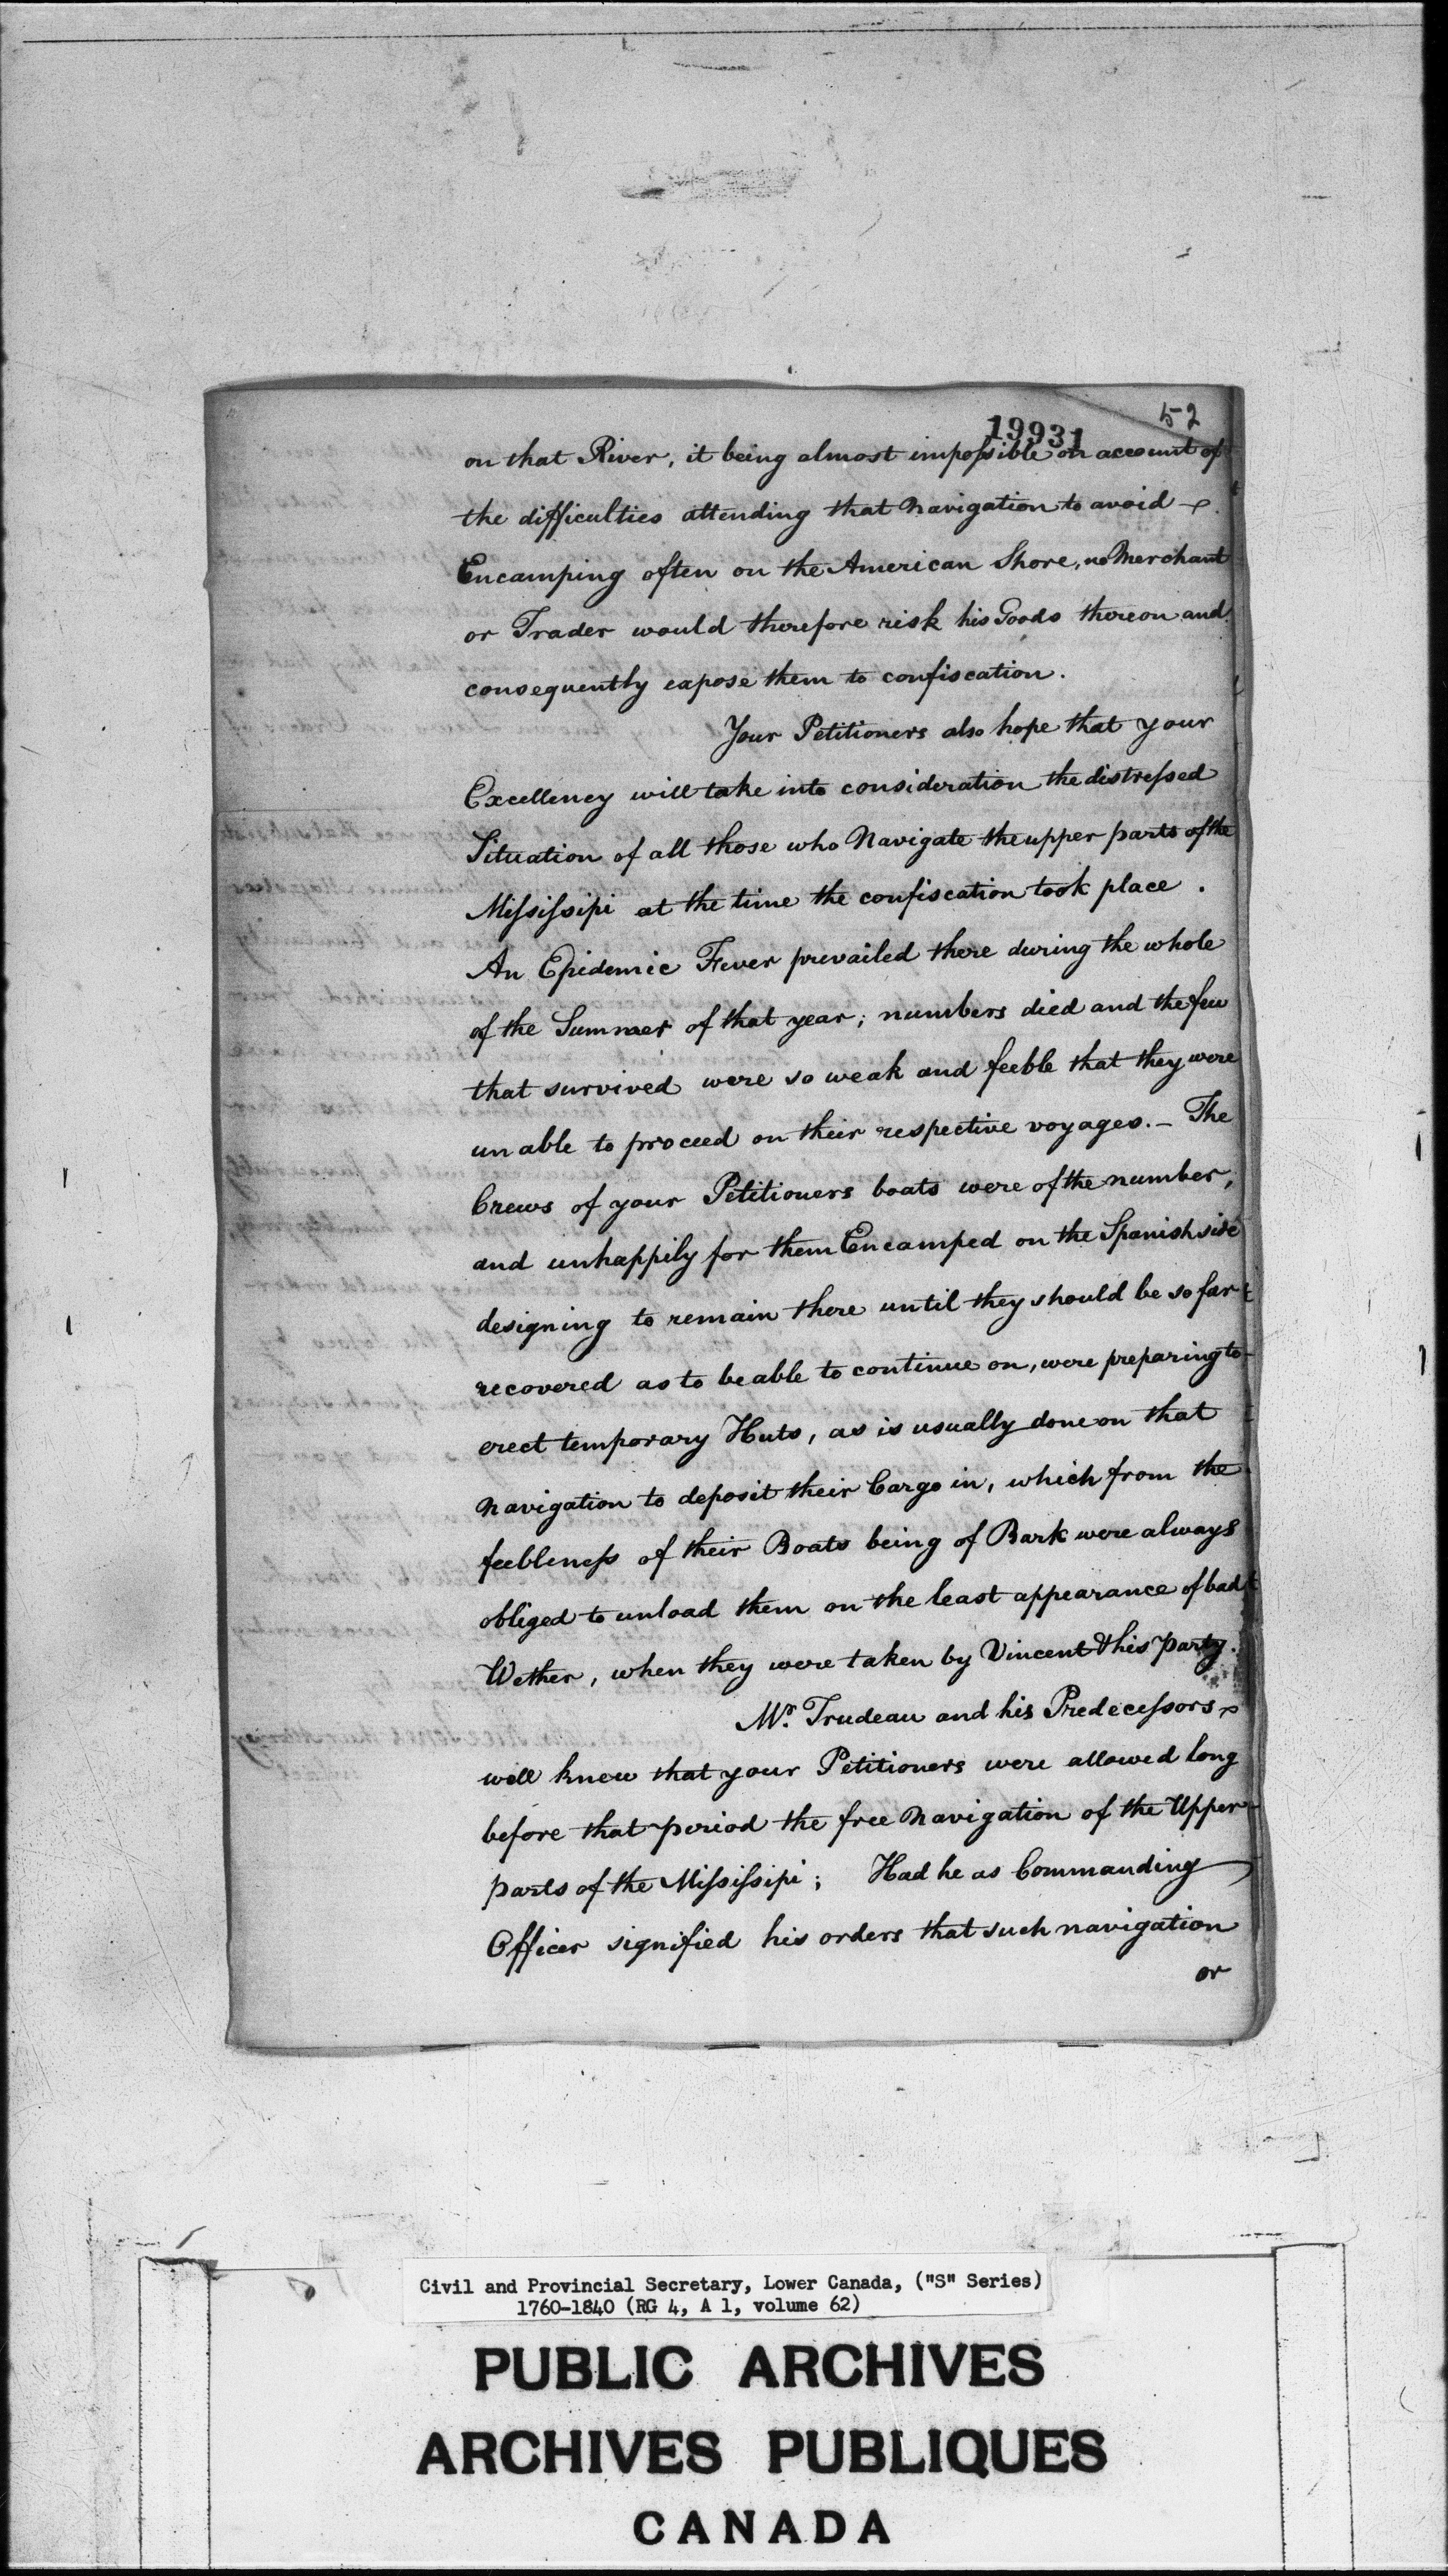 19931
52
on that River, it being almost impossible on account of
the difficulties attending that Navigation to avoid
Encamping often on the American Shore, no Merchant
or Trader would therefore risk his Goods thereon and
consequently expose them to confiscation.
Your Petitioners also hope that your
Excellency will take into consideration the distressed
Situation of all those who Navigate the upper parts of the
Missisipi at the time the confiscation took place.
An Epidemic Fever prevailed there during the whole
of the Summer of that year; numbers died and the few
that survived were so weak and feeble that they were
unable to proceed on their respective voyages. – The
Crews of your Petitioners boats were of the number,
and unhappily for them Encamped on the Spanish side
designing to remain there until they should be so far
recovered as to be able to continue on, were preparing to
erect temporary Huts, as is usually done on that
Navigation to deposit their Cargo in, which from the
feebleness of their Boats being of Bark were always
obliged to unload them on the least appearance of bad
Wether, when they were taken by Vincent & his party.
Mr. Trudeau and his Predecessors
well knew that your Petitioners were allowed long
before that period the free Navigation of the Upper
parts of the Missisipi; Had he as Commanding
Officer signified his orders that such navigation
or
Civil and Provincial Secretary, Lower Canada, ("S" Series)
1760-1840 (RG 4, A 1, volume 62)
PUBLIC ARCHIVES
ARCHIVES PUBLIQUES
CANADA